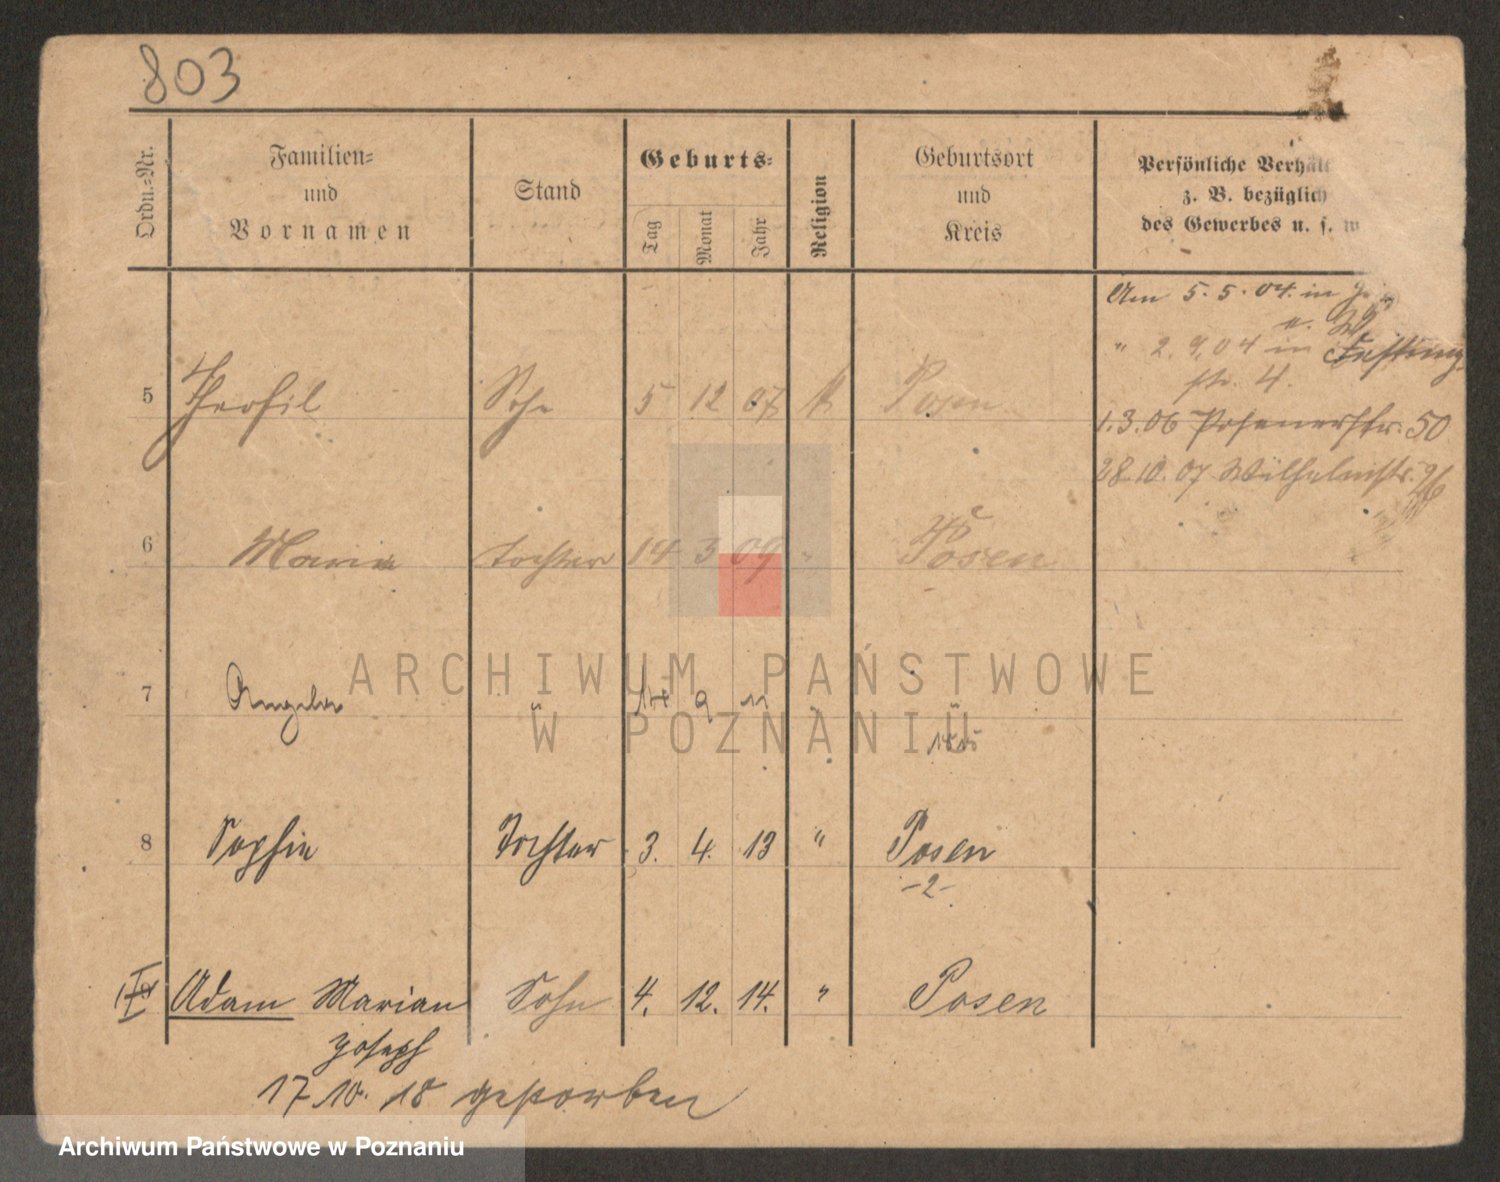 803
Ordn.=Nr.
Familien=
und
Vornamen
Stand
Geburts=
Tag
Monat
Jahr
Religion
Geburtsort
und
Kreis
Persönliche Verhält
z. B. bezüglich
des Gewerbes u. s. w
Am 5. 5. 04. in
" 2. 9. 04 in
str. 4.
1. 3. 06 Posenerstr. 50
28. 10. 07 Wilhelmstr. 96
5 Theofil Sohn 5 12 07 k Posen
6 Maria Tochter 14 3 09 " Posen
7 Angela " 14 9 11 " "
8 Sophie Tochter 3. 4. 13 " Posen
-2-
Adam Marian Sohn 4. 12. 14. " Posen
Joseph
17. 10. 18 gestorben
ARCHIWUM PAŃSTWOWE
W POZNANIU
Archiwum Państwowe w Poznaniu